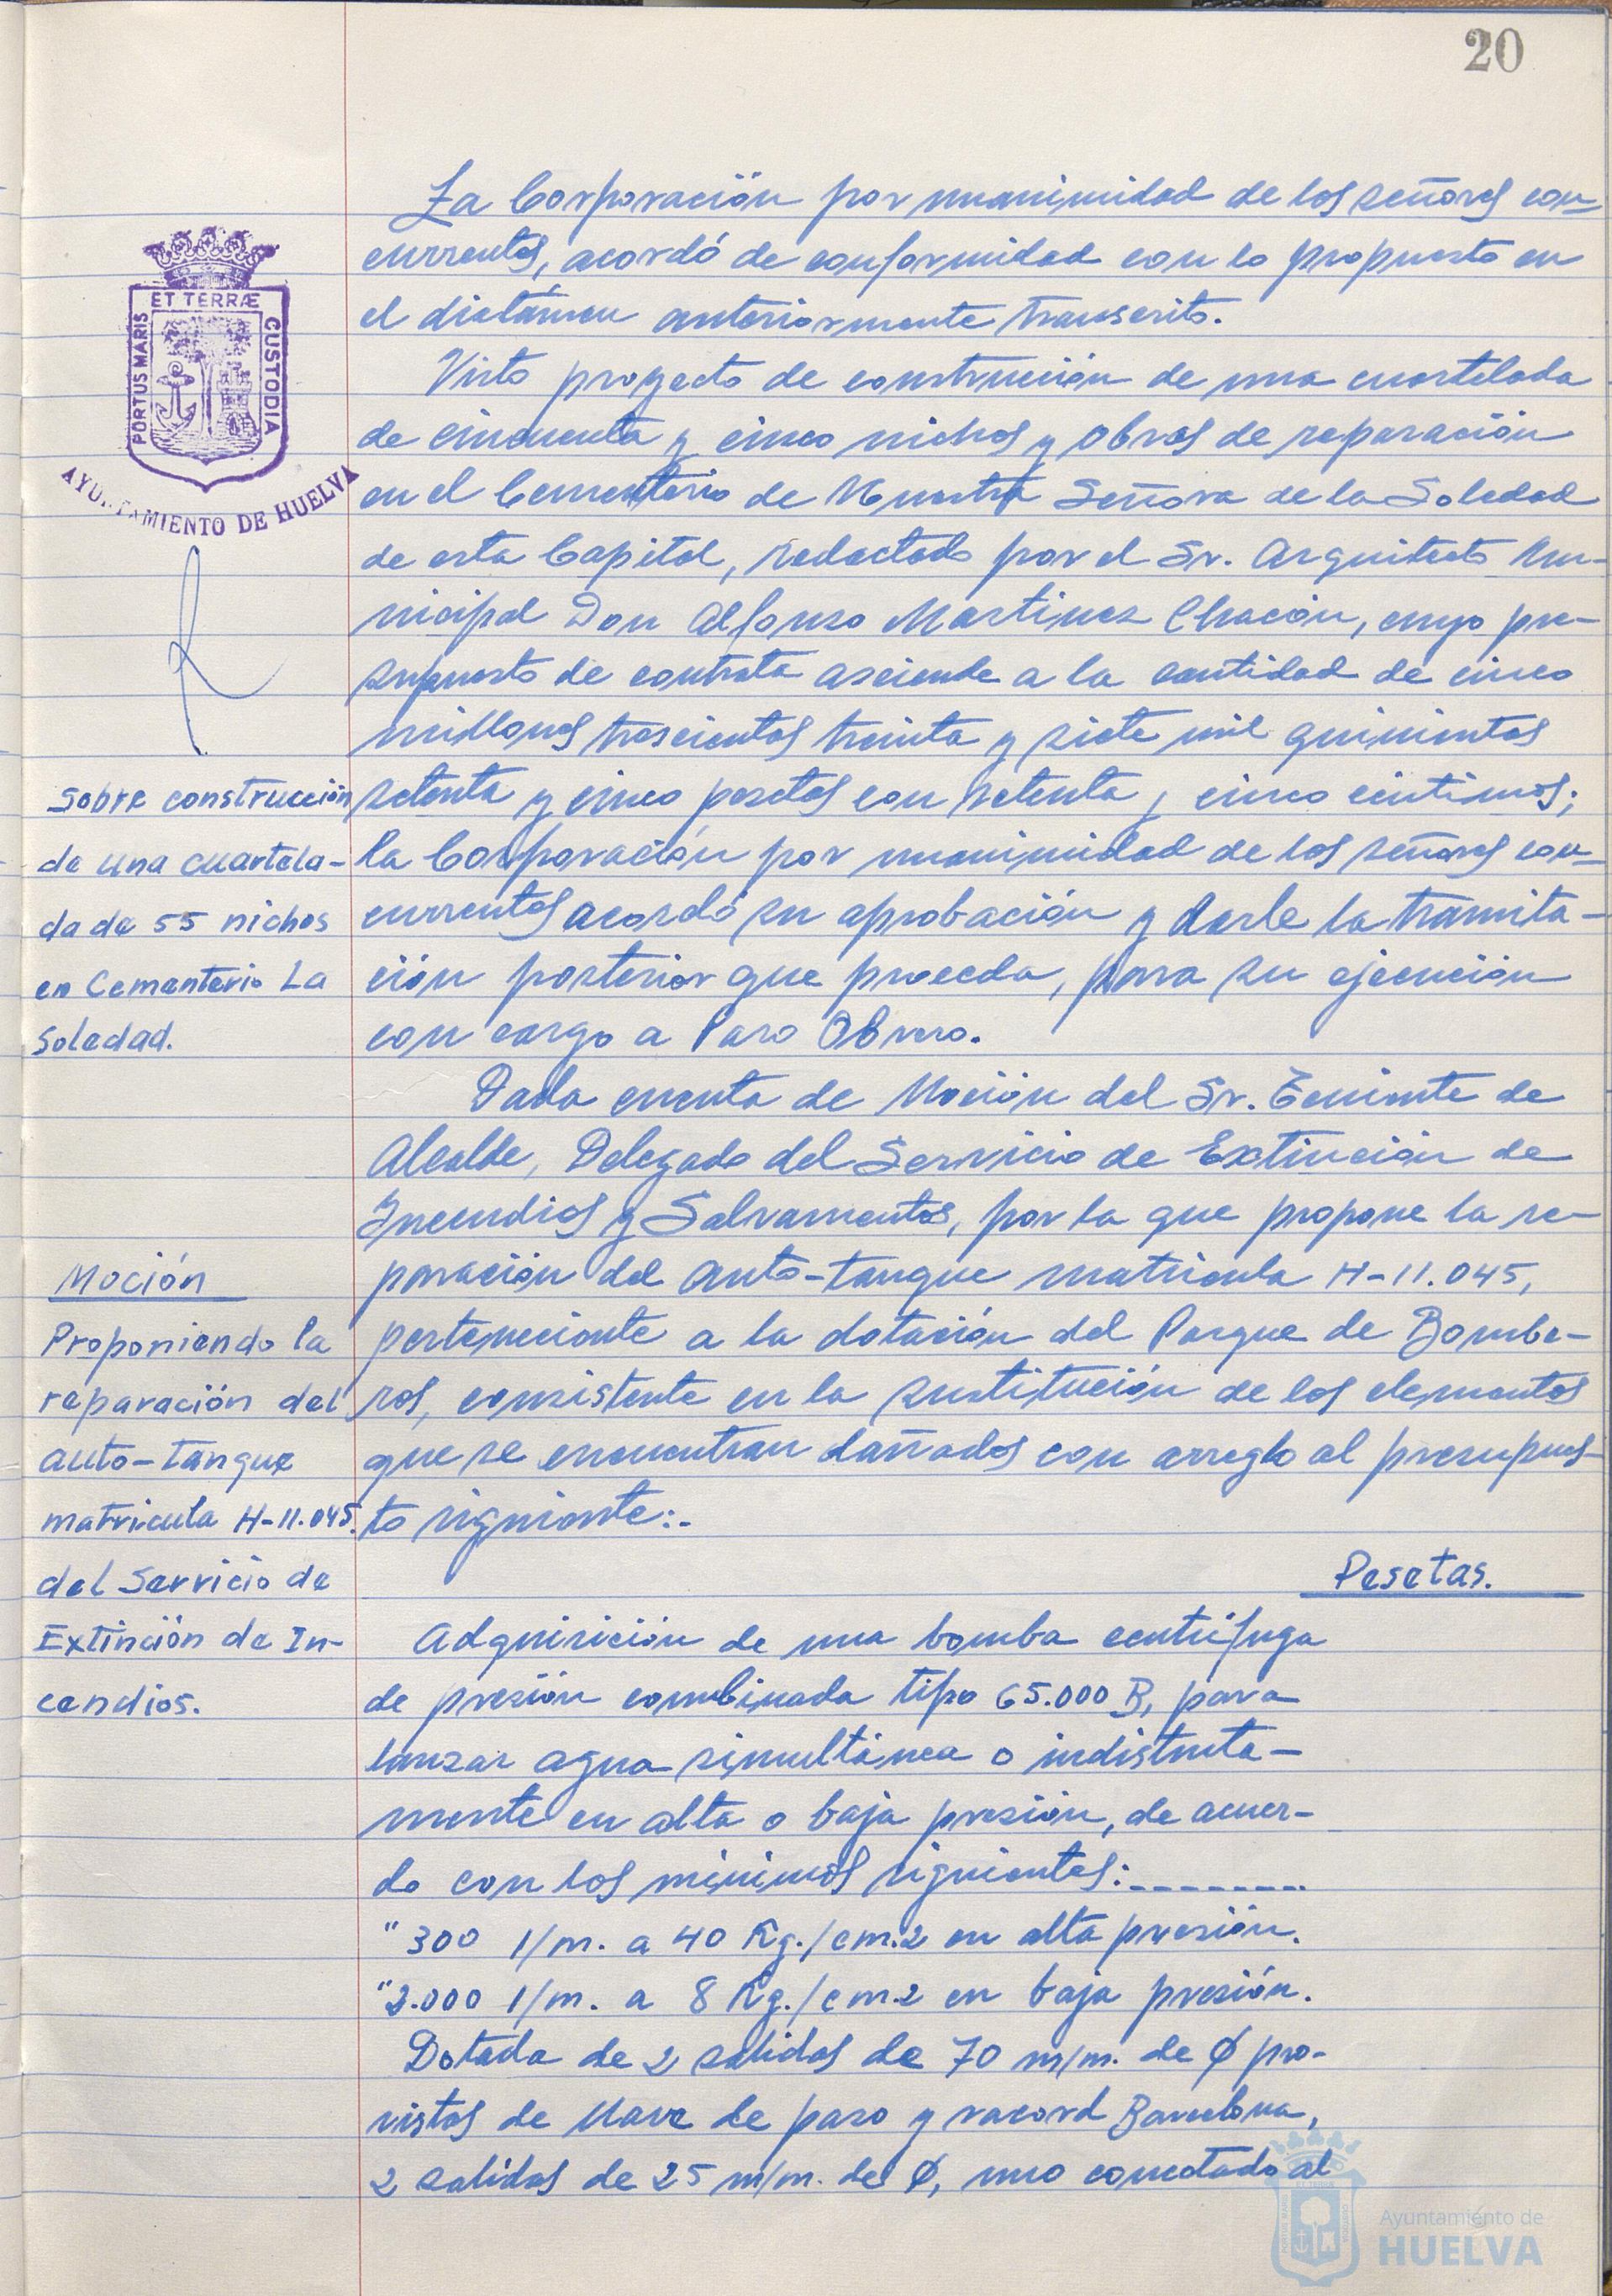 20
La Corporación por unanimidad de los señores con-
currentes, acordó de conformidad con lo propuesto en
el dictámen anteriormente transcrito.
Visto proyecto de construcción de una cuartelada
de cincuenta y cinco nichos y obras de reparación
en el Cementerio de Nuestra Señora de la Soledad
de esta Capital, redactado por el Sr. Arquitecto Mu-
nicipal Don Alfonso Martinez Chacón, cuyo pre-
supuesto de contrata asciende a la cantidad de cinco
millones trescientas treinta y siete mil quinientas
setenta y cinco pesetas con setenta y cinco céntimos;
la Corporación por unanimidad de los señores con-
currentes acordó su aprobación y darle la tramita-
ción posterior que proceda, para su ejecución
con cargo a Paro Obrero.
Dada cuenta de Moción del Sr. Teniente de
Alcalde, Delegado del Servicio de Extinción de
Incendios y Salvamentos, por la que propone la re-
paración del auto-tanque matricula H-11.045,
perteneciente a la dotación del Parque de Bombe-
ros, consistente en la sustitución de los elementos
que se encuentran dañados con arreglo al presupues-
to siguiente:.-
Pesetas.
Adquisición de una bomba centrífuga
de presión combinada tipo 65.000 B, para
lanzar agua simultánea o indistinta-
mente en alta o baja presión, de acuer-
do con los mínimos siguientes:-------
" 300 l/m. a 40 Kg./cm.2 en alta presión.
" 2.000 l/m. a 8 Kg./cm.2 en baja presión.
Dotada de 2 salidas de 70 m/m. de Ø pro-
vistas de llave de paso y racord Barcelona,
2 salidas de 25 m/m. de Ø, uno conectado al
ET TERRÆ
PORTUS MARIS
CUSTODIA
AYUNTAMIENTO DE HUELVA
Sobre construcción
de una cuartela-
da de 55 nichos
en Cementerio La
Soledad.
Moción
Proponiendo la
reparación del
auto-tanque
matricula H-11.045.
del Servicio de
Extinción de In-
cendios.
Ayuntamiento de
HUELVA